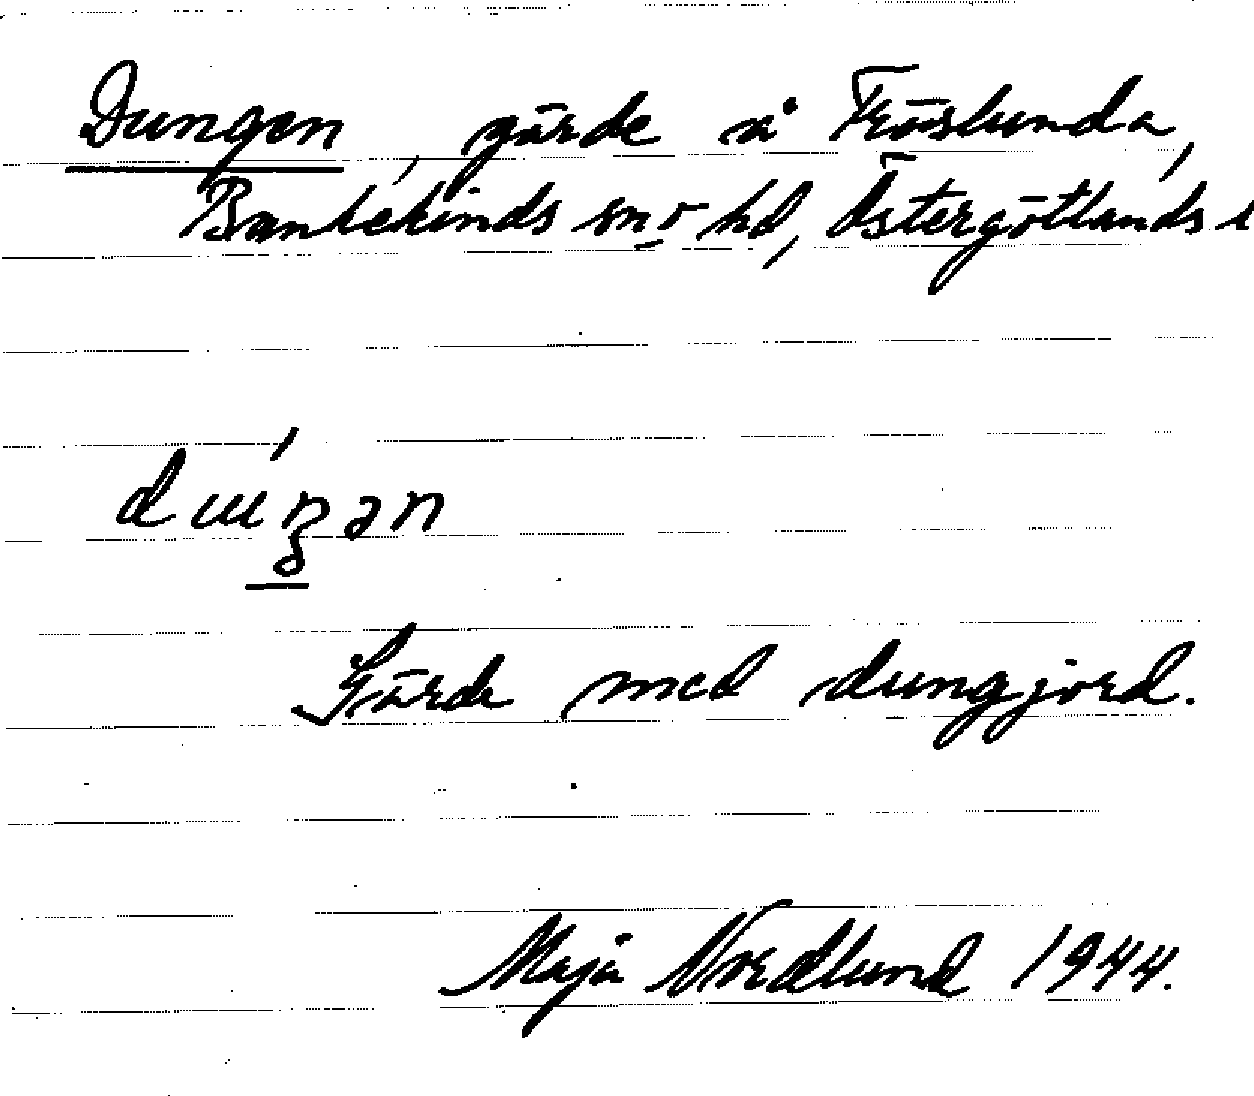 Dungen, gärde å Fröslunda,
Bankekinds sn o hd, Östergötlands
Gärde med dungjord.
Maja Nordlund 1944.